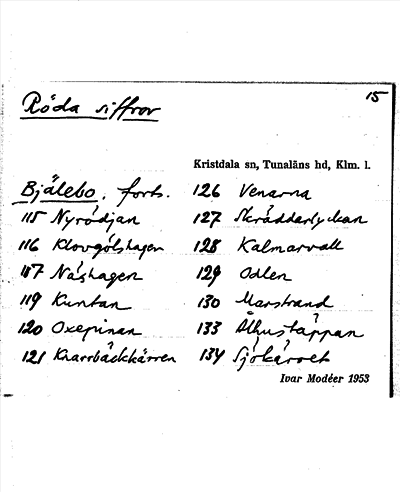 Röda siffror
15
Kristdala sn, Tunaläns hd, Klm. l.
Bjälebo, forts.
115 Nyrödjan
116 Klovgölshagen
117 Näshagen
119 Kuntan
120 Oxepinan
121 Knarrbäckkärren
126 Venarna
127 Skräddarlyckan
128 Kalmarvall
129 Odlen
130 Marstrand
133 Ålhustäppan
134 Sjökärret
Ivar Modéer 1953